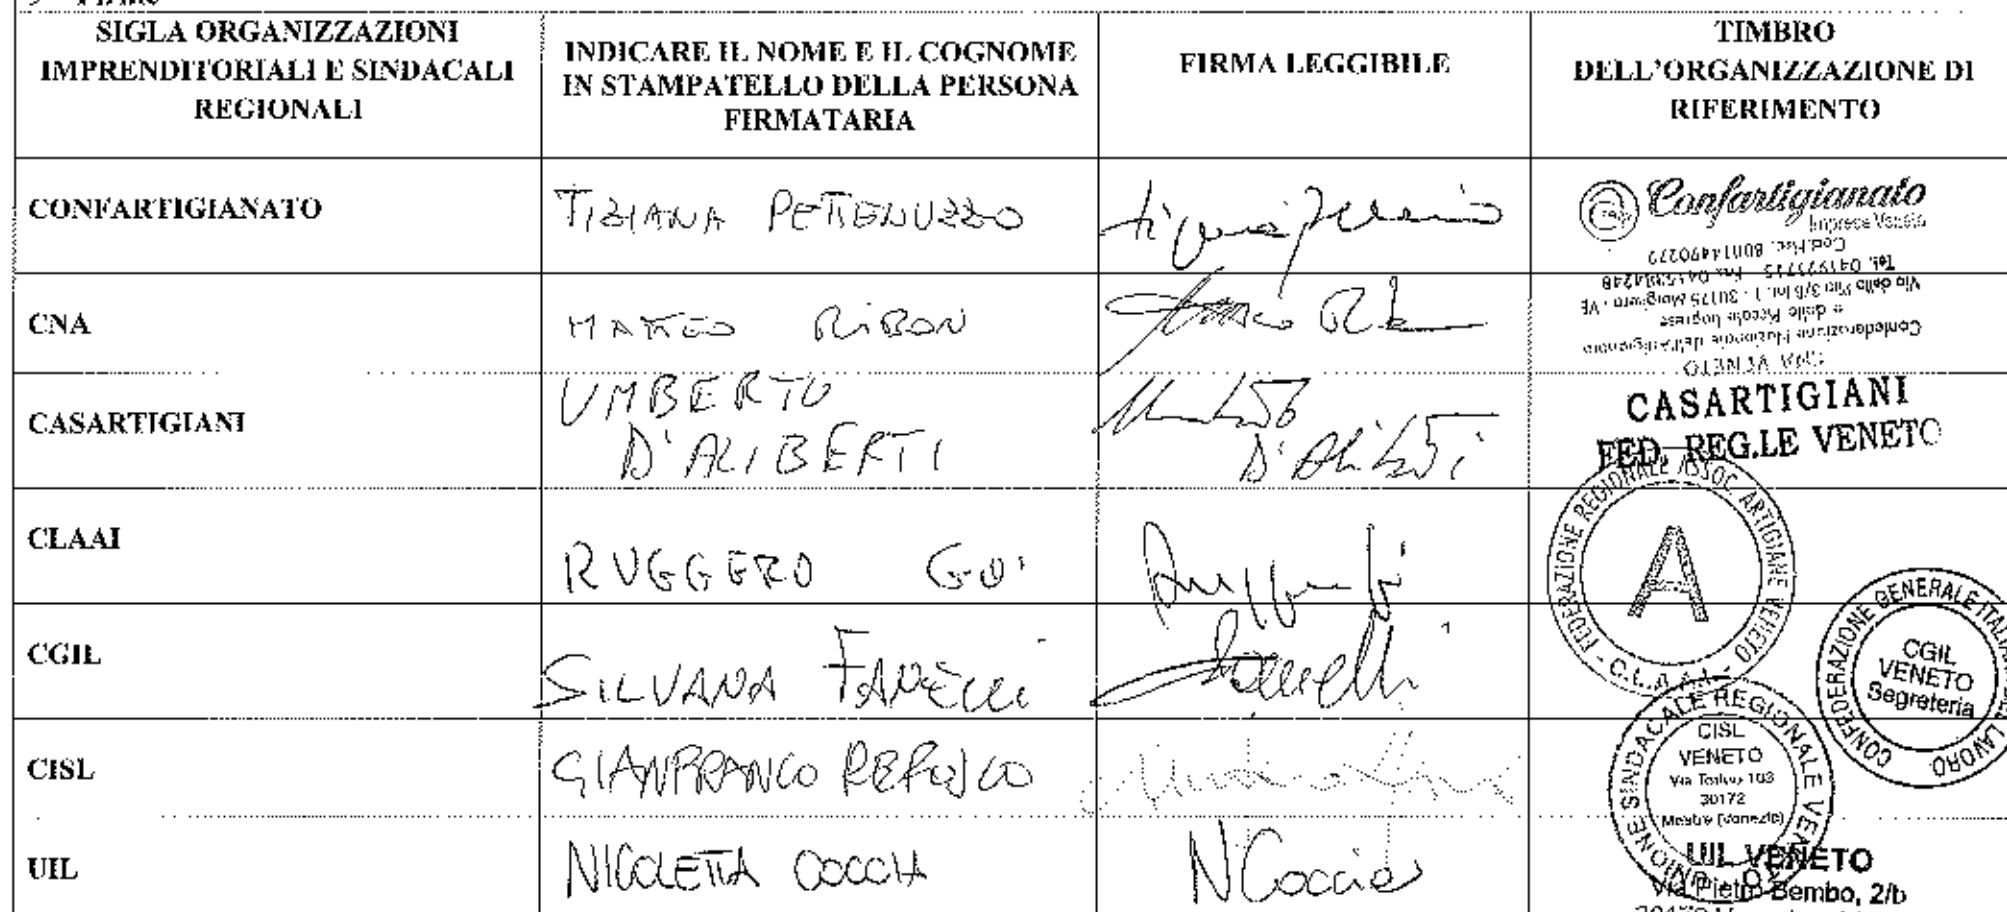 SIGLA ORGANIZZAZIONI
IMPRENDITORIALI E SINDACALI
REGIONALI
INDICARE IL NOME E IL COGNOME
IN STAMPATELLO DELLA PERSONA
FIRMATARIA
FIRMA LEGGIBILE
TIMBRO
DELL'ORGANIZZAZIONE DI
RIFERIMENTO
CONFARTIGIANATO
TIZIANA PETTENUZZO
Confartigianato
CNA
MATTEO RIBON
Cod. Fisc. 80011490272
Via della Pila 3/B Int. 1 - 30175 Marghera - VE
Confederazione Nazionale dell'Artigianato
e della Piccola Impresa
CNA VENETO
CASARTIGIANI
UMBERTO
D'ALIBERTI
Umberto
D'Aliberti
CASARTIGIANI
FED. REG.LE VENETO
CLAAI
RUGGERO GO'
FEDERAZIONE REGIONALE ASSOC. ARTIGIANE VENETO - C.L.A.A.I. -
A
CGIL
SILVANA FANELLI
Fanelli
CONFEDERAZIONE GENERALE ITALIANA LAVORO
CGIL
VENETO
Segreteria
CISL
GIANFRANCO REFOSCO
UNIONE SINDACALE REGIONALE VENETO
CISL
VENETO
30172
Mestre (Venezia)
UIL
NICOLETTA COCCIA
N Coccia
UIL VENETO
Via Pietro Bembo, 2/b